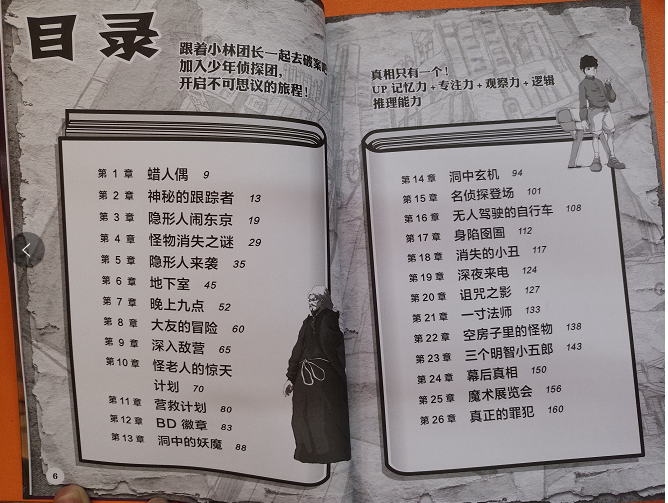 目录
跟着小林团长一起去破案吧
加入少年侦探团，
开启不可思议的旅程！
第 1 章 蜡人偶 9
第 2 章 神秘的跟踪者 13
第 3 章 隐形人闹东京 19
第 4 章 怪物消失之谜 29
第 5 章 隐形人来袭 35
第 6 章 地下室 45
第 7 章 晚上九点 52
第 8 章 大友的冒险 60
第 9 章 深入敌营 65
第 10 章 怪老人的惊天
计划 70
第 11 章 营救计划 80
第 12 章 BD 徽章 83
第 13 章 洞中的妖魔 88
6
真相只有一个！
UP 记忆力 + 专注力 + 观察力 + 逻辑
推理能力
第 14 章 洞中玄机 94
第 15 章 名侦探登场 101
第 16 章 无人驾驶的自行车 108
第 17 章 身陷囹圄 112
第 18 章 消失的小丑 117
第 19 章 深夜来电 124
第 20 章 诅咒之影 127
第 21 章 一寸法师 133
第 22 章 空房子里的怪物 138
第 23 章 三个明智小五郎 143
第 24 章 幕后真相 150
第 25 章 魔术展览会 156
第 26 章 真正的罪犯 160